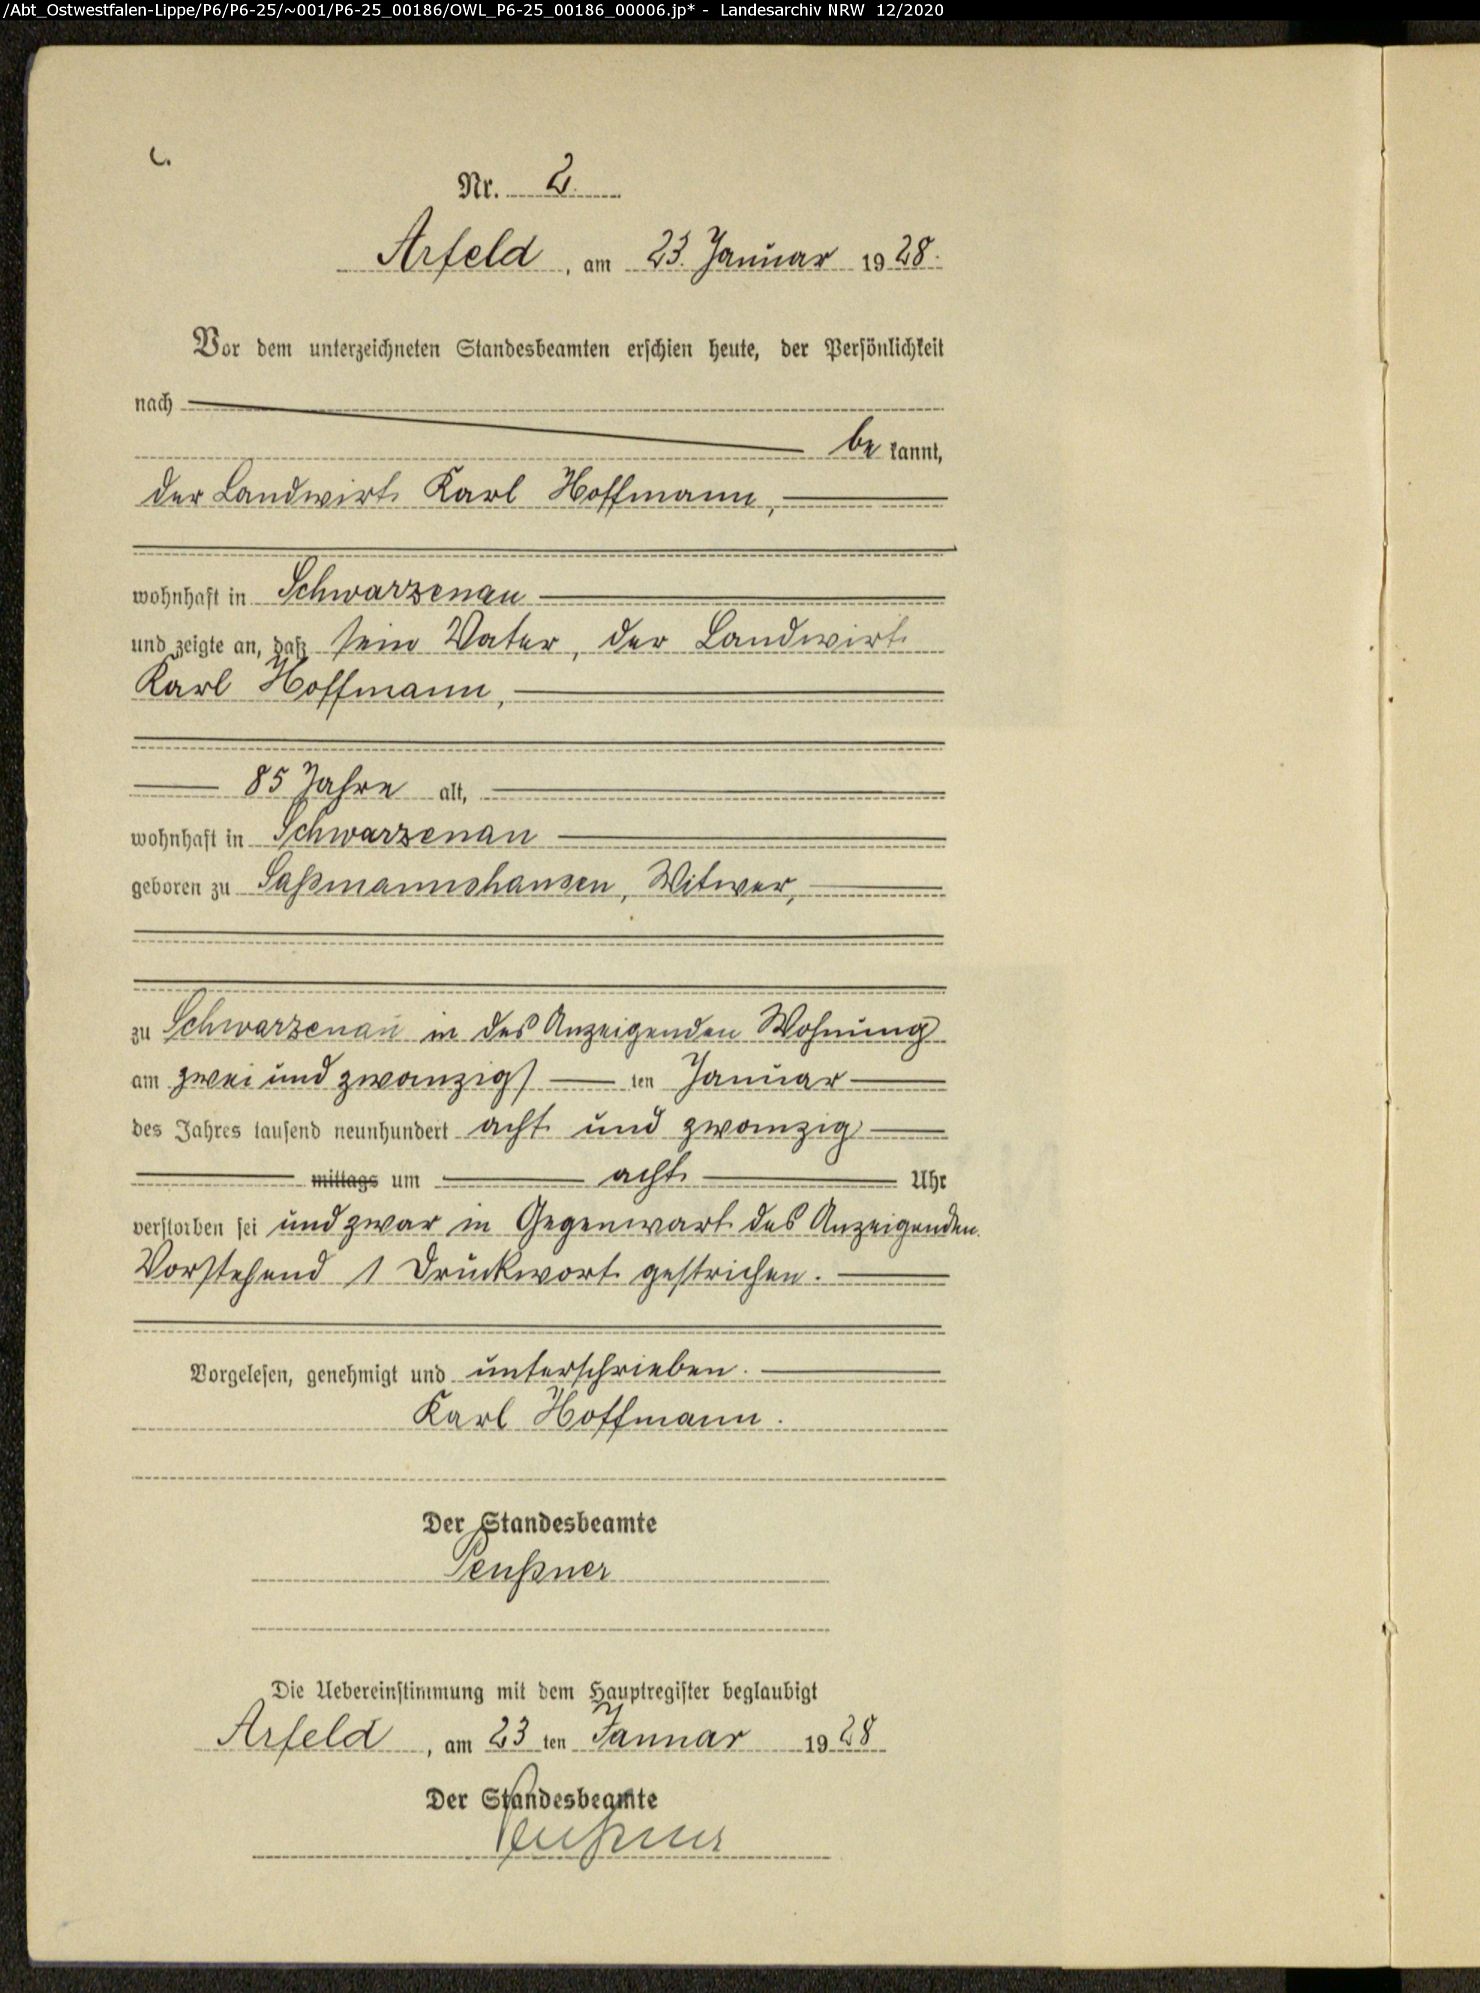 /Abt_Ostwestfalen-Lippe/P6/P6-25/~001/P6-25_00186/OWL_P6-25_00186_00006.jp* - Landesarchiv NRW 12/2020
Nr. 2.
Arfeld, am 23. Januar 1928.
Vor dem unterzeichneten Standesbeamten erschien heute, der Persönlichkeit
nach
be kannt,
der Landwirt Karl Hoffmann,
wohnhaft in Schwarzenau
und zeigte an, daß sein Vater, der Landwirt
Karl Hoffmann,
85 Jahre alt,
wohnhaft in Schwarzenau
geboren zu Saßmannshausen, Witwer,
zu Schwarzenau in des Anzeigenden Wohnung
am zwei und zwanzigs ten Januar
des Jahres tausend neunhundert acht und zwanzig
mittags um acht Uhr
verstorben sei und zwar in Gegenwart des Anzeigenden.
Vorstehend 1 Druckwort gestrichen.
Vorgelesen, genehmigt und unterschrieben.
Karl Hoffmann.
Der Standesbeamte
Peußner
Die Uebereinstimmung mit dem Hauptregister beglaubigt
Arfeld, am 23 ten Januar 1928
Der Standesbeamte
Peußner